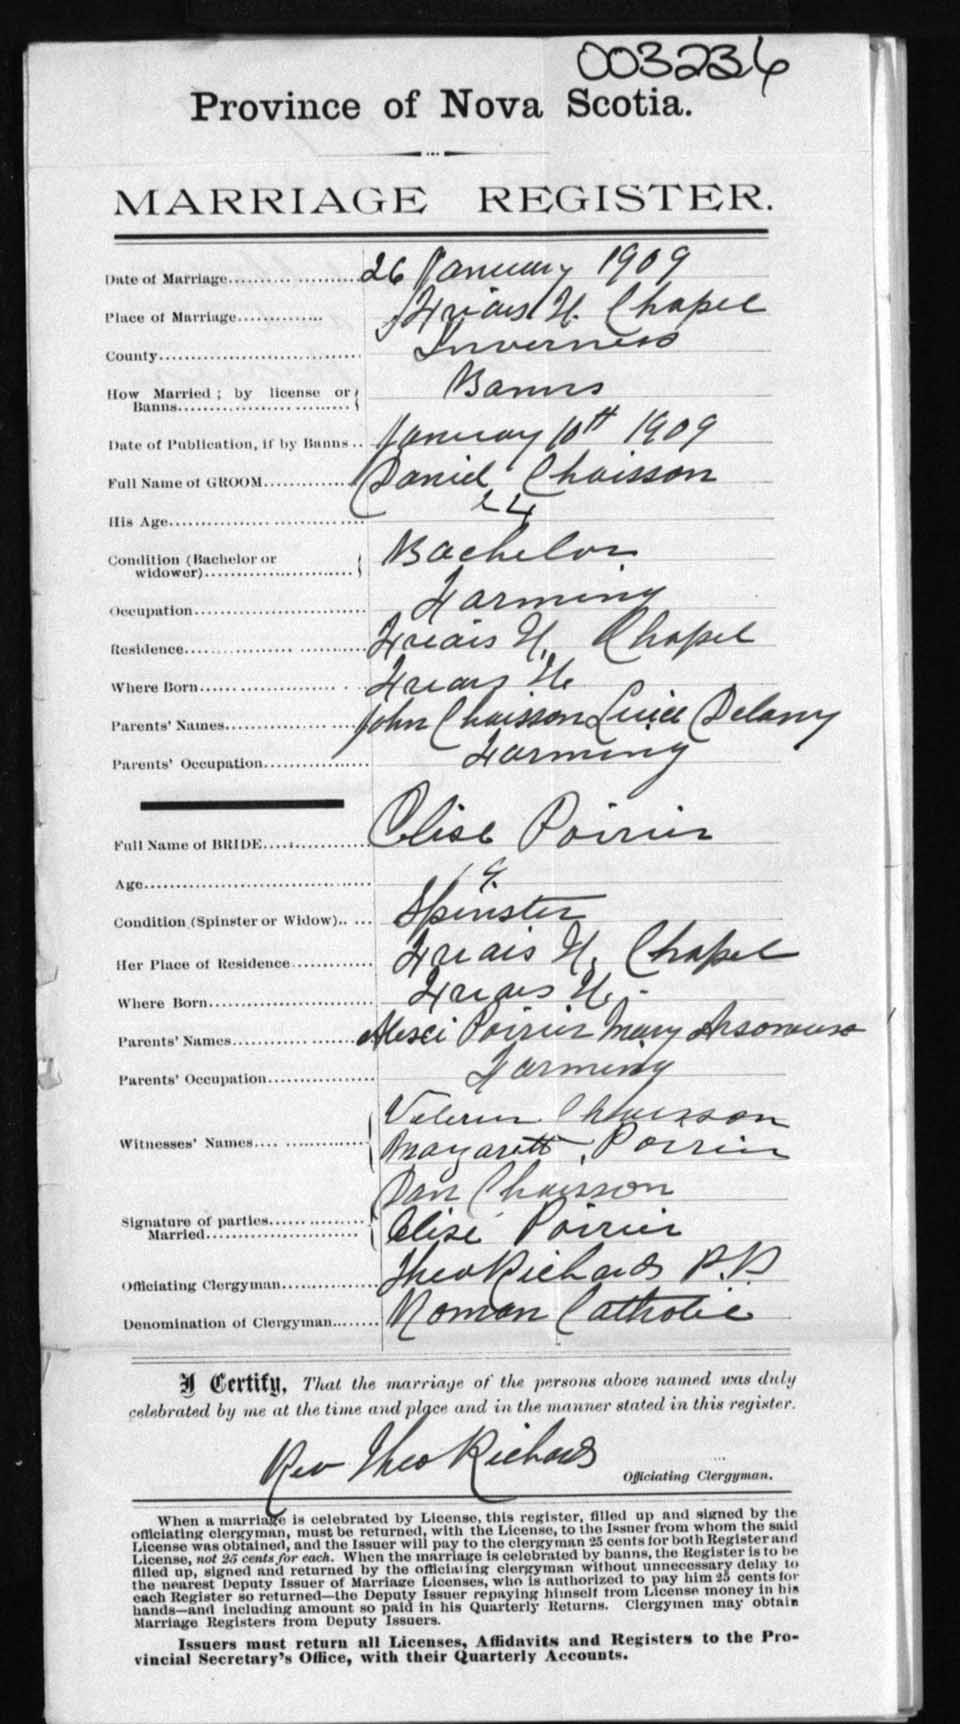 003236
Province of Nova Scotia.
MARRIAGE REGISTER.
Date of Marriage 26 January 1909
Place of Marriage Friars H. Chapel
County Inverness
How Married; by license or Banns Banns
Date of Publication, if by Banns January 10th 1909
Full Name of GROOM Daniel Chaisson
His Age 24
Condition (Bachelor or widower) Bachelor
Occupation Farming
Residence Friars H. Chapel
Where Born Friars H.
Parents' Names John Chaisson Delany
Parents' Occupation Farming
Full Name of BRIDE Elise Poirier
Age 19
Condition (Spinster or Widow) Spinster
Her Place of Residence Friars H. Chapel
Where Born Friars H.
Parents' Names Poirier Mary
Parents' Occupation Farming
Witnesses' Names Chaisson
Margarett Poirier
Dan Chaisson
Signature of parties Married Elise Poirier
Officiating Clergyman Theo Richards P.P.
Denomination of Clergyman Roman Catholic
I Certify, That the marriage of the persons above named was duly
celebrated by me at the time and place and in the manner stated in this register.
Rev Theo Richards
Officiating Clergyman.
When a marriage is celebrated by License, this register, filled up and signed by the
officiating clergyman, must be returned, with the License, to the Issuer from whom the said
License was obtained, and the Issuer will pay to the clergyman 25 cents for both Register and
License, not 25 cents for each. When the marriage is celebrated by banns, the Register is to be
filled up, signed and returned by the officiating clergyman without unnecessary delay to
the nearest Deputy Issuer of Marriage Licenses, who is authorized to pay him 25 cents for
each Register so returned—the Deputy Issuer repaying himself from License money in his
hands—and including amount so paid in his Quarterly Returns. Clergymen may obtain
Marriage Registers from Deputy Issuers.
Issuers must return all Licenses, Affidavits and Registers to the Pro-
vincial Secretary's Office, with their Quarterly Accounts.